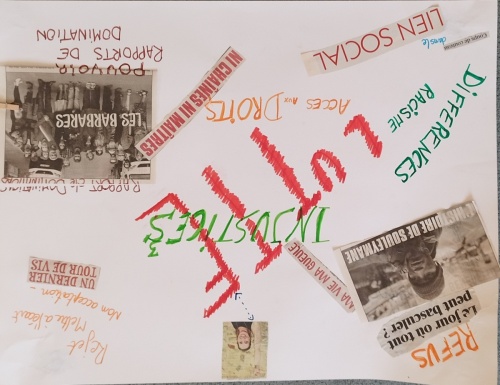 POUVOIR
RAPPORTS DE
DOMINATION
LES BARBARES
RAPPORT DE DOMINATION
NI CHAINES NI MAITRES
ACCES AUX DROITS
Coups de couteau
dans le
LIEN SOCIAL
DIFFERENCES
RACISTIE
LUTTE
INJUSTICES
MA VIE MA GUEULE
L'HISTOIRE DE SOULEYMANE
Le jour où tout
peut basculer ?
REFUS
UN DERNIER
TOUR DE VIS
Rejet
Mettre à l'écart
Non acceptation